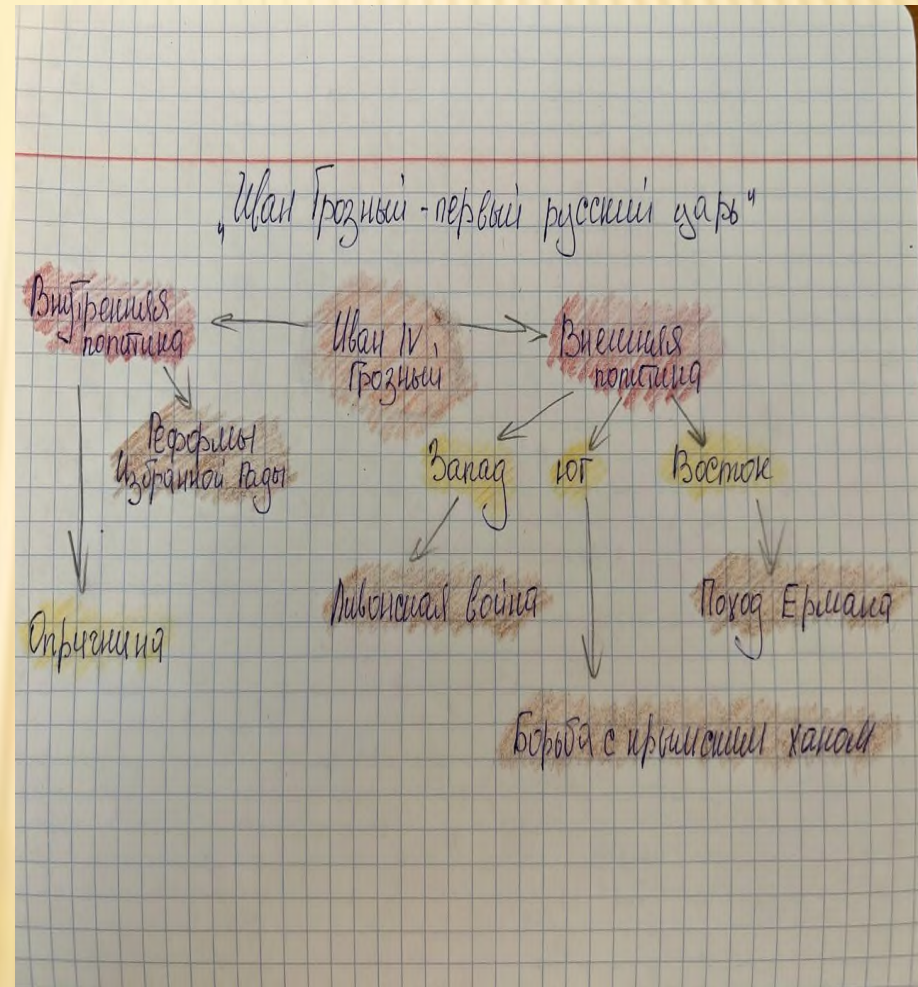 „Иван Грозный - первый русский царь"
Внутренняя
политика
Иван IV
Грозный
Внешняя
политика
Реформы
Избранной Рады
Запад
ЮГ
Восток
Опричнина
Ливонская война
Поход Ермака
Борьба с крымским ханом